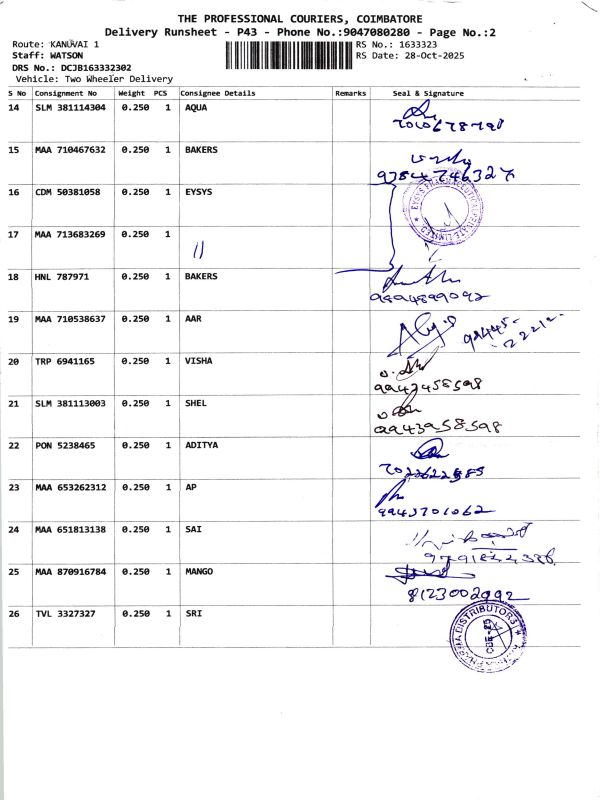 THE PROFESSIONAL COURIERS, COIMBATORE
Delivery Runsheet - P43 - Phone No.:9047080280 - Page No.:2
Route: KANUVAI 1
RS No.: 1633323
Staff: WATSON
RS Date: 28-Oct-2025
DRS No.: DCJB163332302
Vehicle: Two Wheeler Delivery
S No Consignment No Weight PCS Consignee Details Remarks Seal & Signature
14 SLM 381114304 0.250 1 AQUA
15 MAA 710467632 0.250 1 BAKERS
9384746327
16 CDM 50381058 0.250 1 EYSYS
EYSYS PHARMACEUTICAL PRIVATE LIMITED
17 MAA 713683269 0.250 1 11
18 HNL 787971 0.250 1 BAKERS
9894899092
19 MAA 710538637 0.250 1 AAR
94445-
22212-
20 TRP 6941165 0.250 1 VISHA
21 SLM 381113003 0.250 1 SHEL
9943958598
22 PON 5238465 0.250 1 ADITYA
23 MAA 653262312 0.250 1 AP
9943701062
24 MAA 651813138 0.250 1 SAI
25 MAA 870916784 0.250 1 MANGO
8123002992
26 TVL 3327327 0.250 1 SRI
DISTRIBUTORS